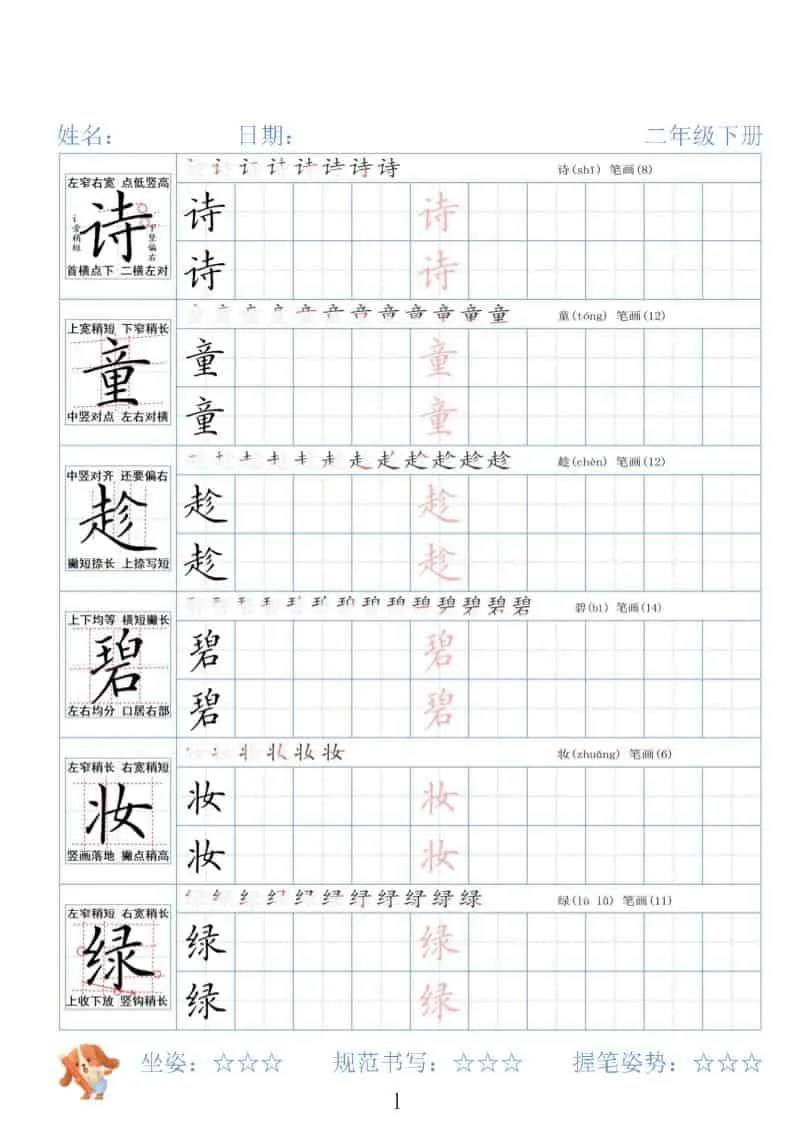 姓名： 日期： 二年级下册
诗(shī) 笔画(8)
左窄右宽 点低竖高
诗
讠变稍短
下竖偏右
首横点下 二横左对
诗 诗
诗 诗
童(tóng) 笔画(12)
上宽稍短 下窄稍长
童
中竖对点 左右对横
童 童
童 童
趁(chèn) 笔画(12)
中竖对齐 还要偏右
趁
撇短捺长 上捺写短
趁 趁
趁 趁
碧(bì) 笔画(14)
上下均等 横短撇长
碧
左右均分 口居右部
碧 碧
碧 碧
妆(zhuāng) 笔画(6)
左窄稍长 右宽稍短
妆
竖画落地 撇点稍高
妆 妆
妆 妆
绿(lù lǜ) 笔画(11)
左窄稍短 右宽稍长
绿
上收下放 竖钩稍长
绿 绿
绿 绿
坐姿：☆☆☆ 规范书写：☆☆☆ 握笔姿势：☆☆☆
1